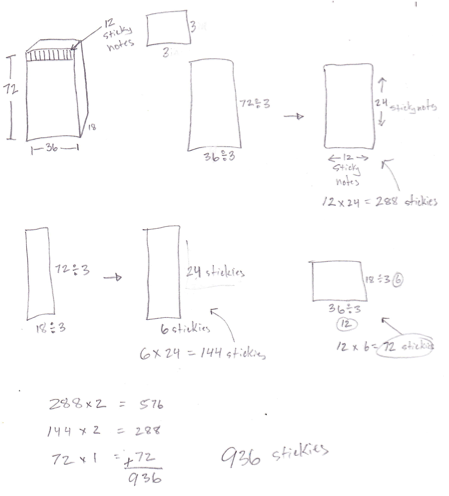 12
sticky
notes
3
3
72
18
36
72÷3
36÷3
24 stickynotes
12
sticky
notes
12 x 24 = 288 stickies
72÷3
18÷3
24 stickies
6 stickies
6 x 24 = 144 stickies
18÷3 6
36÷3
12
12 x 6 = 72 stickies
288 x 2 = 576
144 x 2 = 288
72 x 1 = +72
936
936 stickies